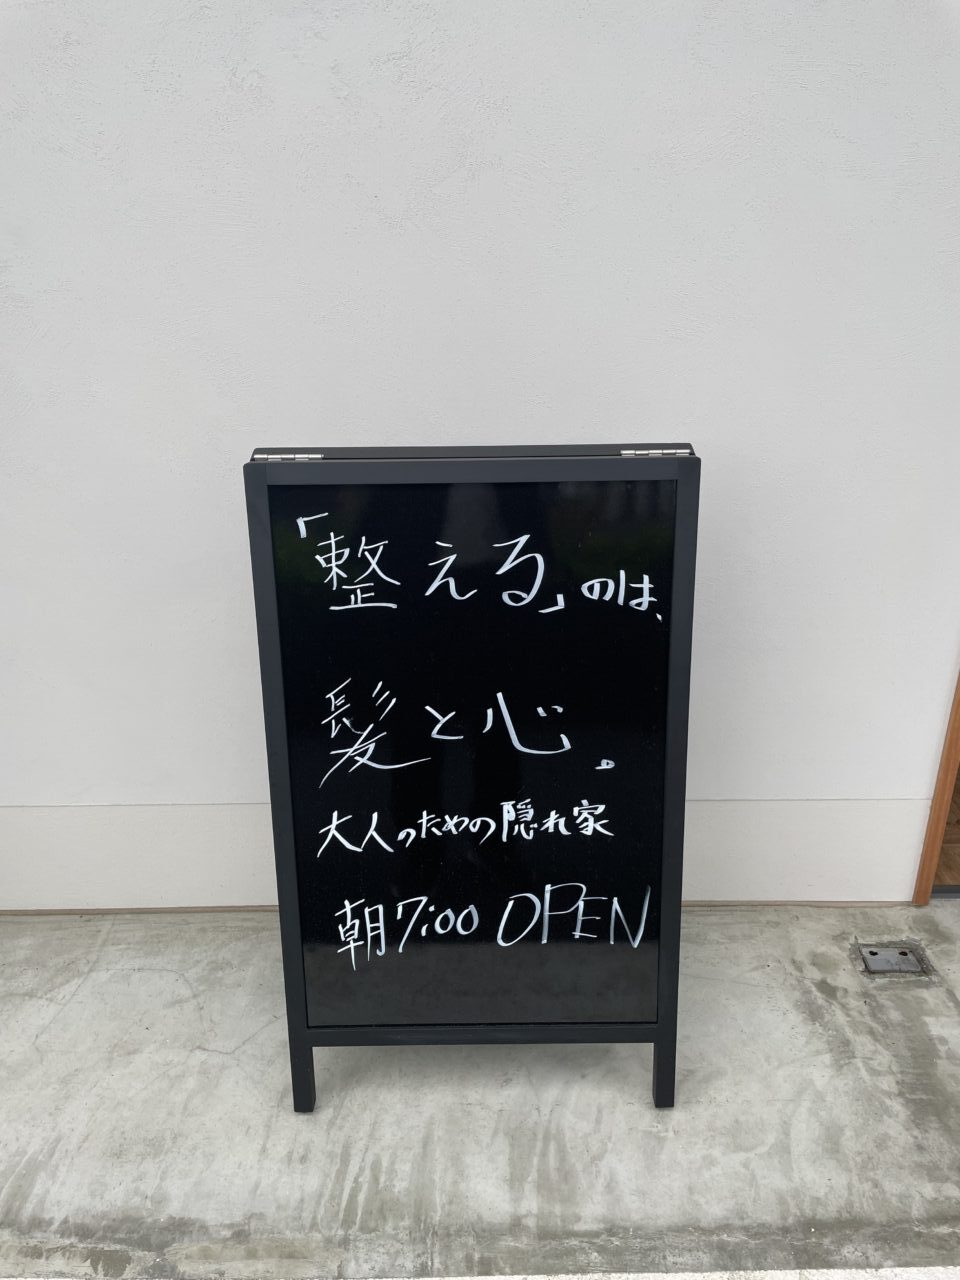 「整える」のは、
髪と心。
大人のための隠れ家
朝7:00 OPEN